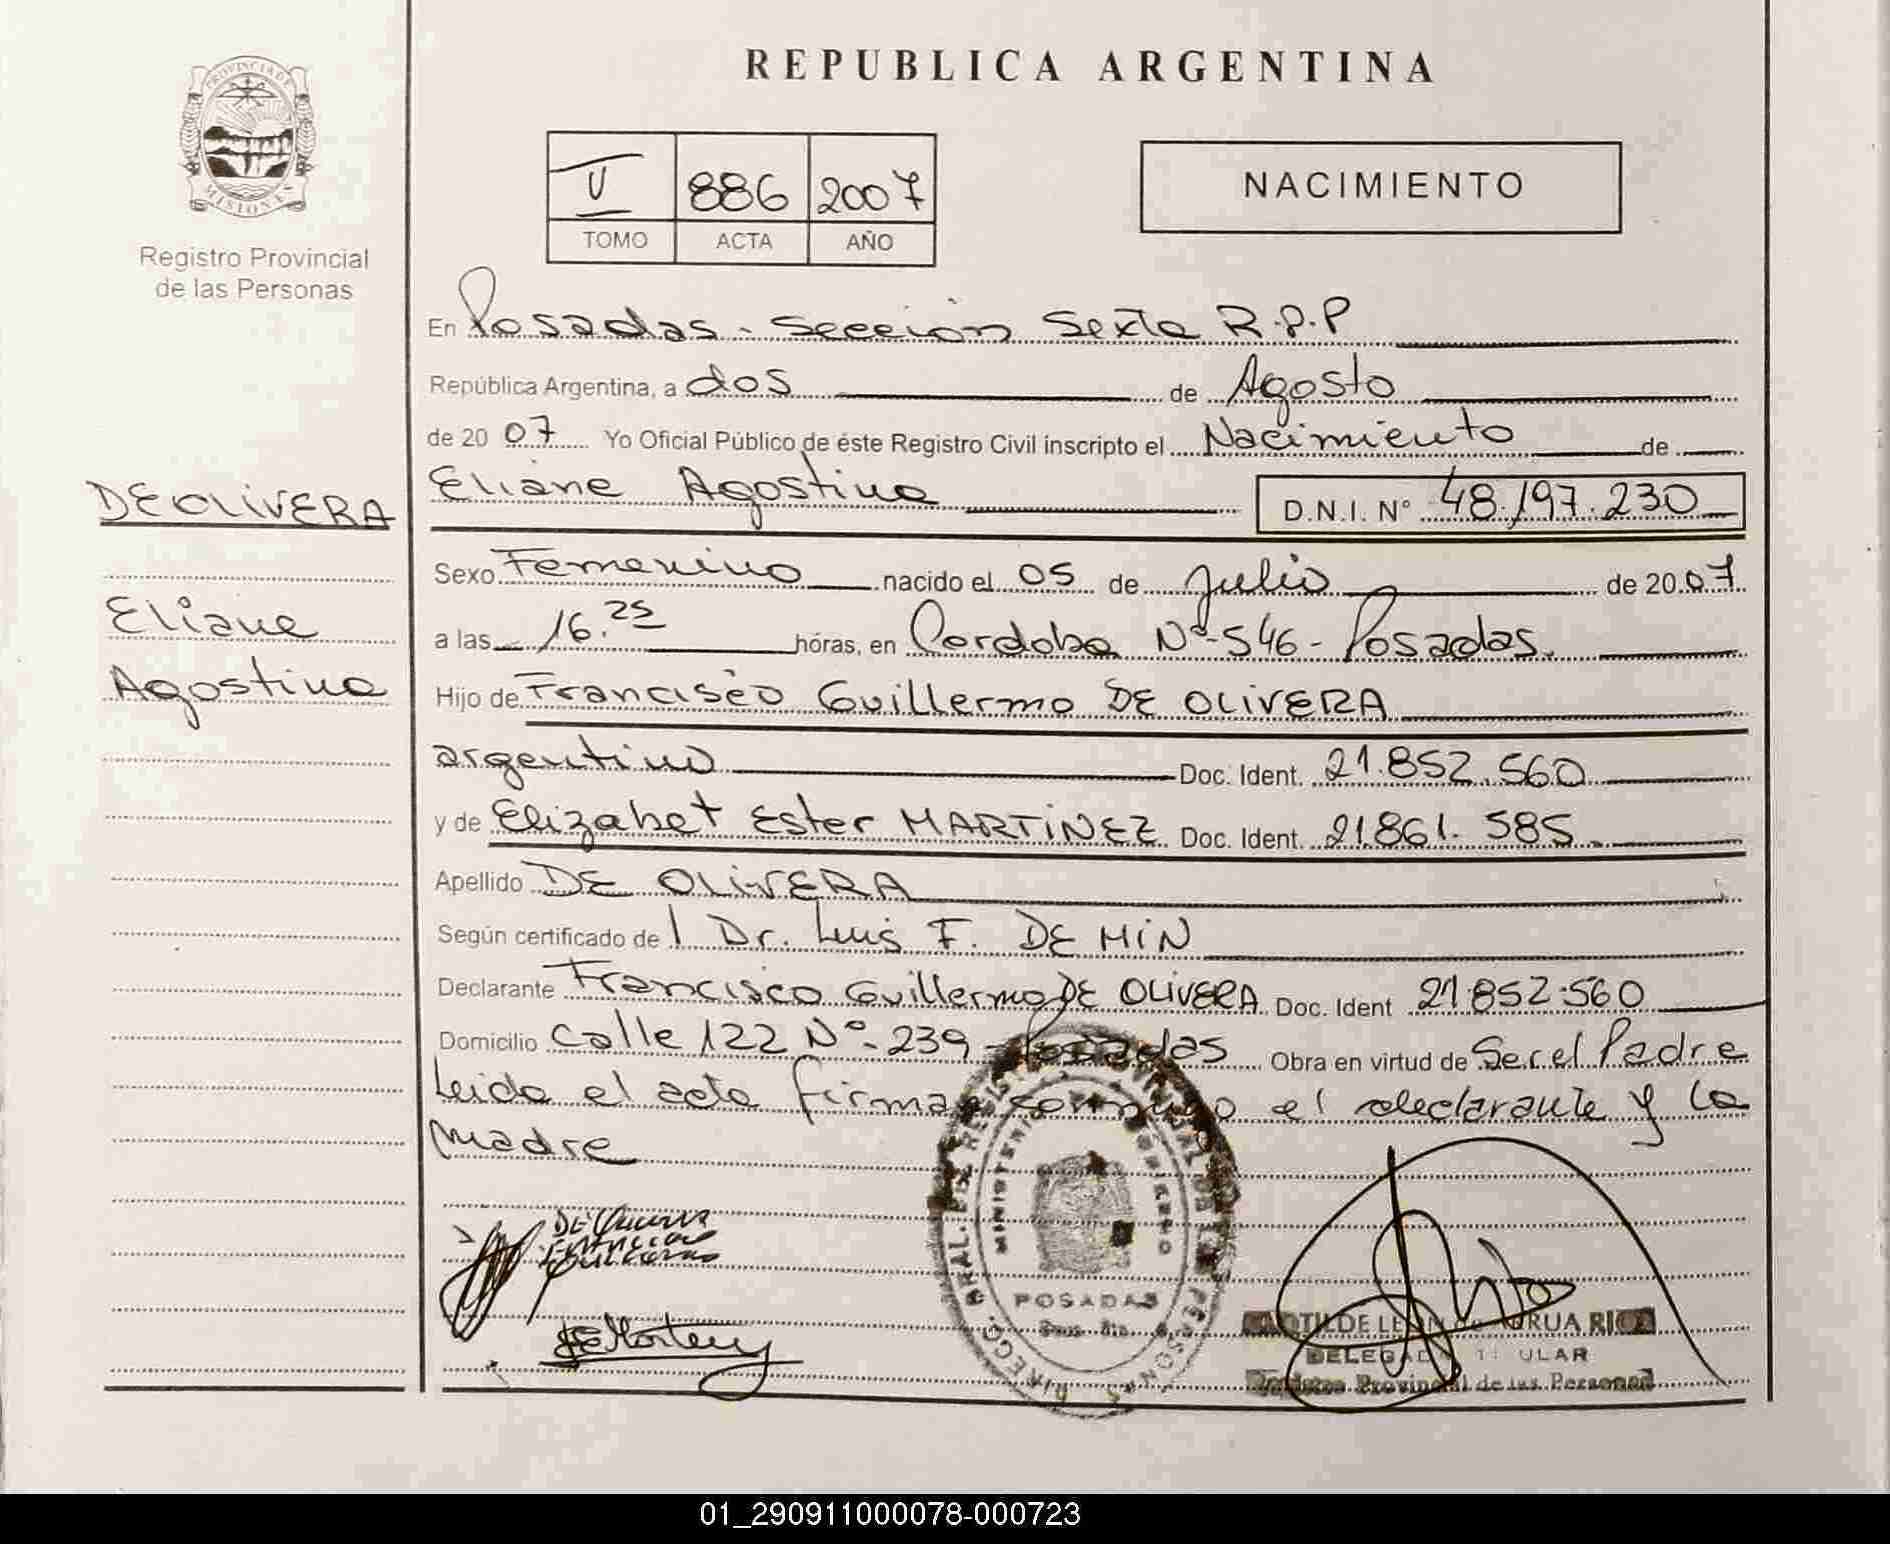 REPUBLICA ARGENTINA
PROVINCIA DE
MISIONES
Registro Provincial
de las Personas
V 886 2007
TOMO ACTA AÑO
NACIMIENTO
En Posadas - Sección Sexta R.P.P
República Argentina, a dos de Agosto
de 20 07 Yo Oficial Público de éste Registro Civil inscripto el Nacimiento de
DE OLIVERA
Eliane Agostina D.N.I. Nº 48.197.230
Sexo Femenino nacido el 05 de Julio de 20 07
Eliane
a las 16.25 hóras, en Cordoba Nº 546 - Posadas.
Agostina
Hijo de Francisco Guillermo DE OLIVERA
argentino Doc. Ident. 21.852.560
y de Elizabet Ester MARTINEZ Doc. Ident. 21.861.585
Apellido DE OLIVERA
Según certificado del Dr. Luis F. DE MIN
Declarante Francisco Guillermo DE OLIVERA Doc. Ident 21.852.560
Domicilio Calle 122 Nº - 239 - Posadas Obra en virtud de Ser el Padre
Leida el acta firman conmigo el declarante y la
madre
DIRECC. GRAL. DEL REGISTRO PROVINCIAL DE LAS PERSONAS
MINISTERIO DE GOBIERNO
POSADAS
DELEGADA TITULAR
Registro Provincial de las Personas
01_290911000078-000723